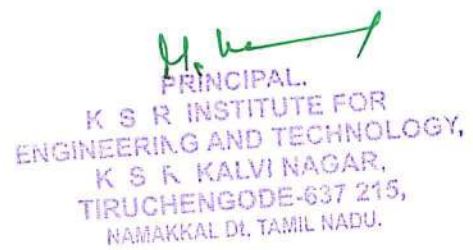 PRINCIPAL.
K S R INSTITUTE FOR
ENGINEERING AND TECHNOLOGY,
K S R KALVI NAGAR,
TIRUCHENGODE-637 215,
NAMAKKAL Dt, TAMIL NADU.